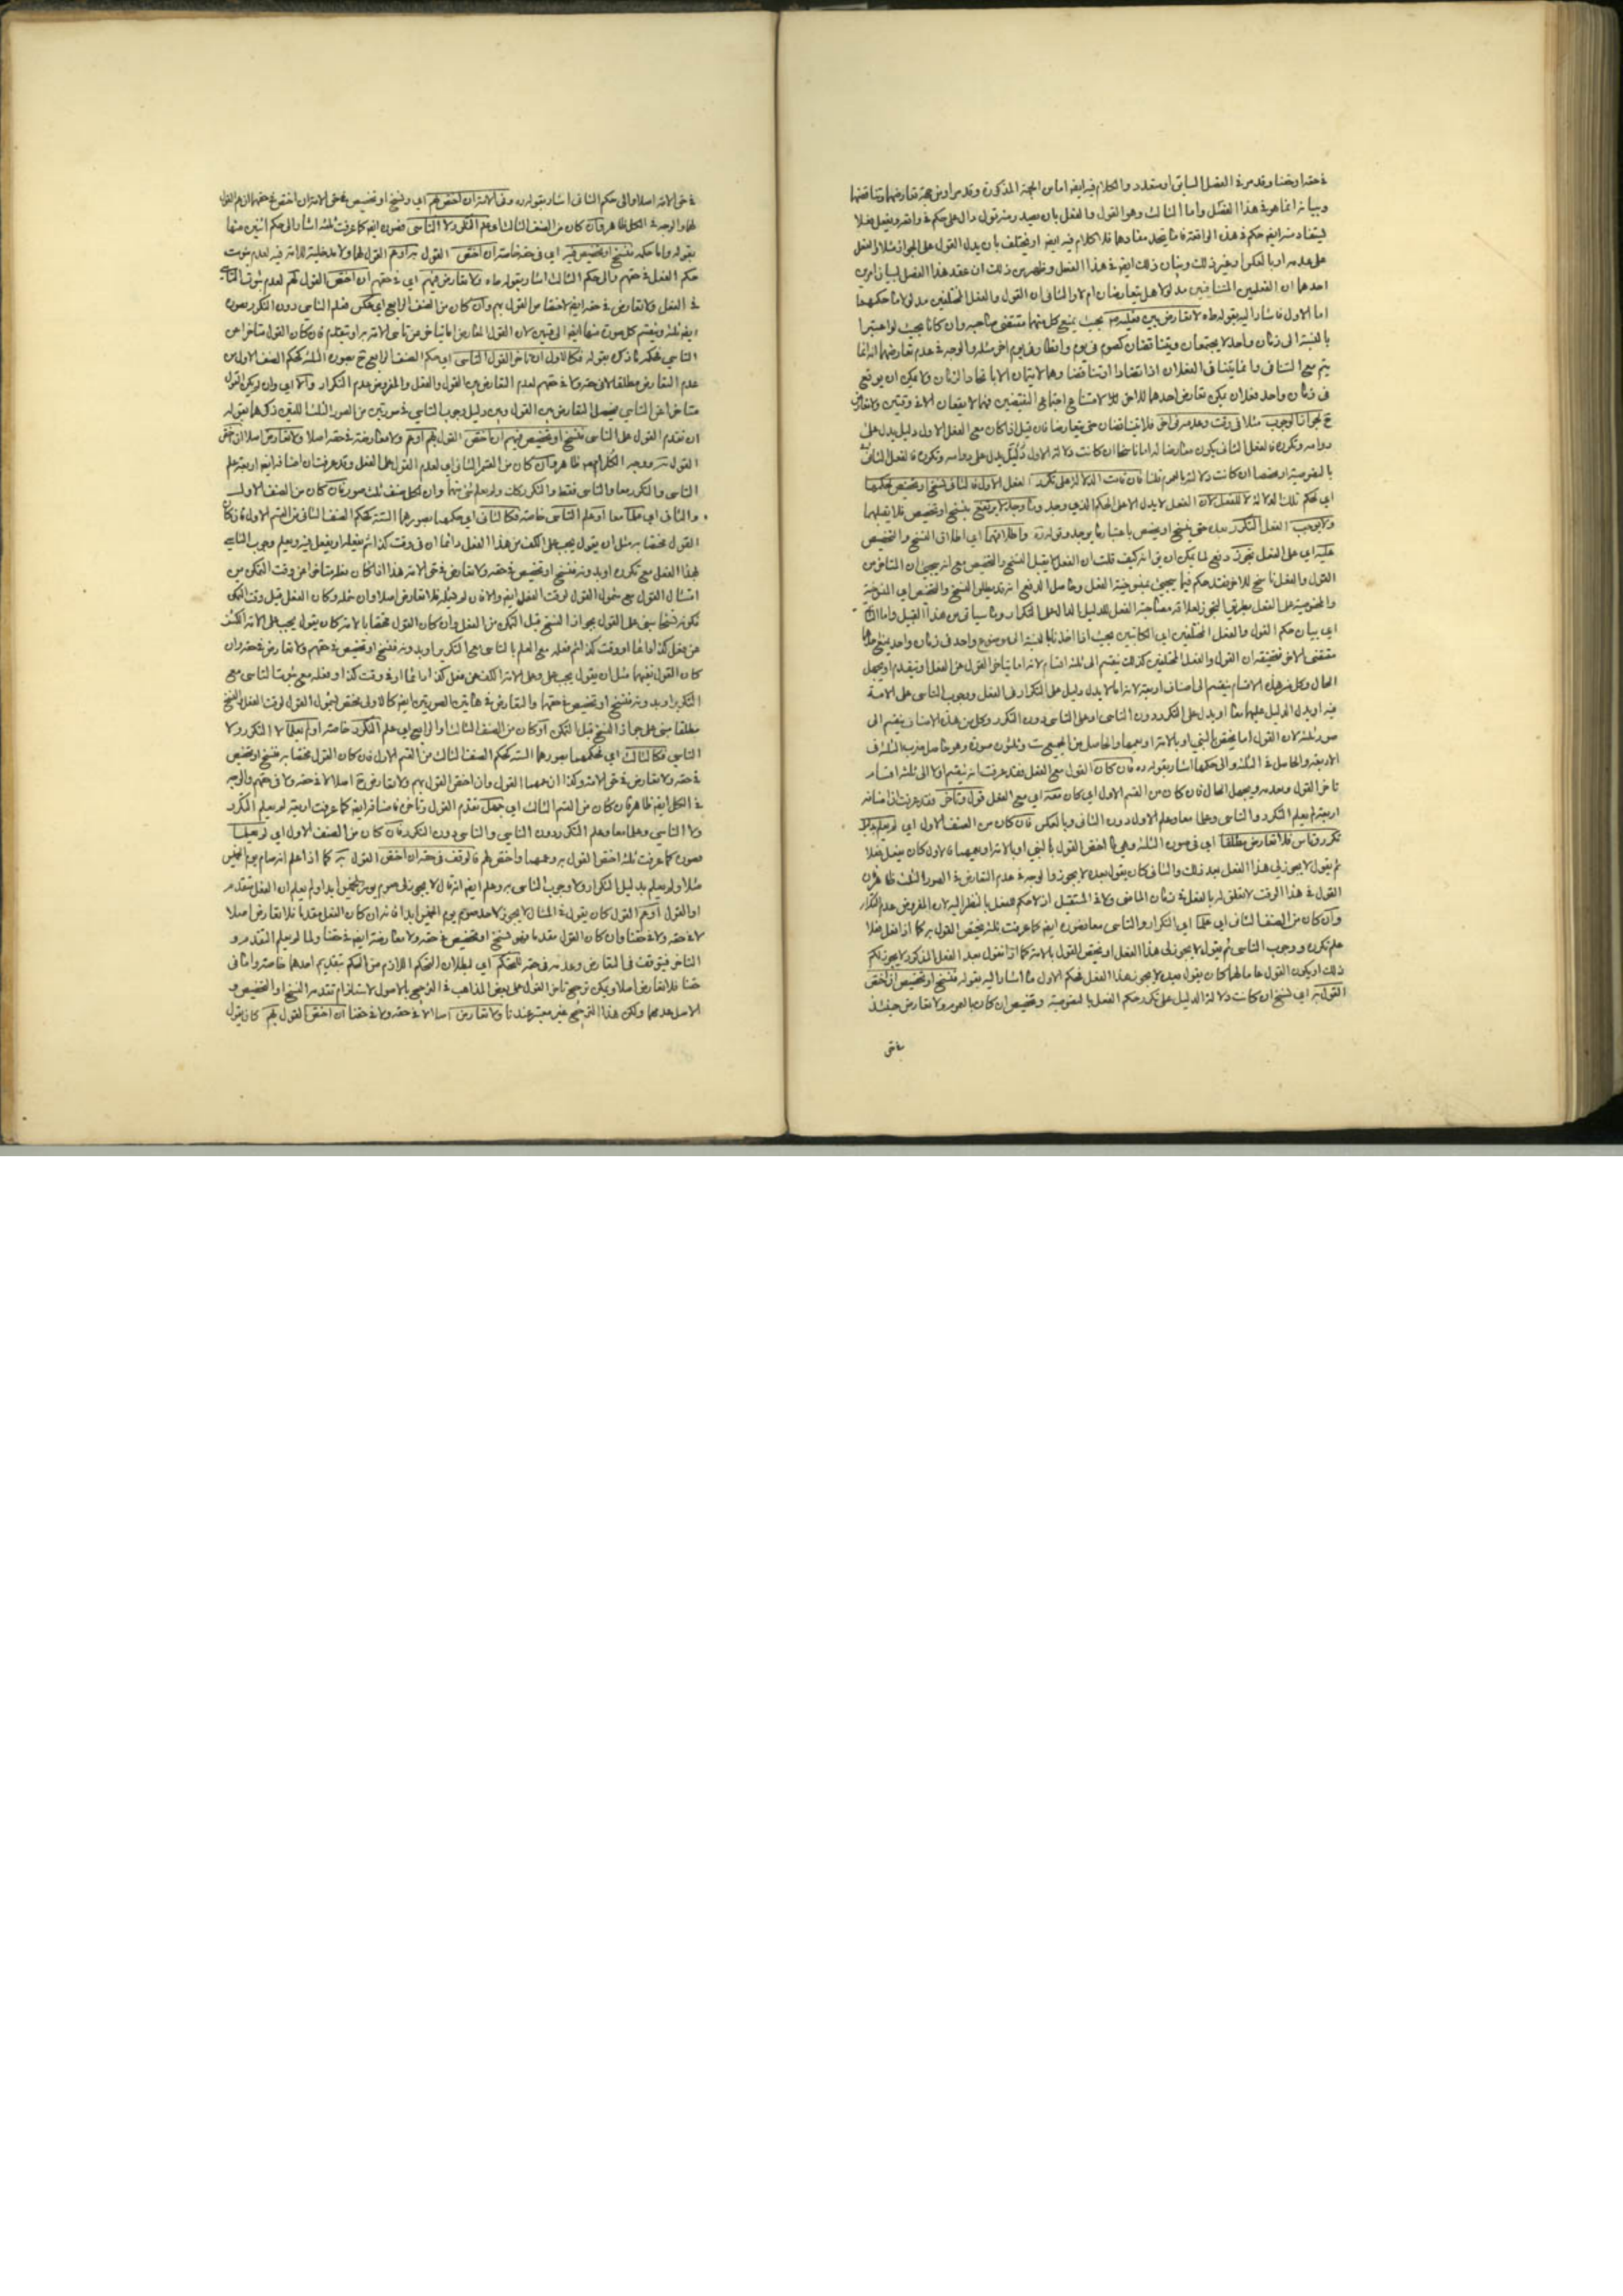 في حقه او حقنا وقد مر في الفصل السابق او متعدد والكلام فيه ايضا اما من الجهة المذكورة وقد مر او من جهة تعارضهما وتناقضهما
وبيانه انما هو في هذا الفصل واما الثالث وهو القول والفعل بان يصدر منه قول دال على حكم في واقعة ويفعل فعلا
يستفاد منه ايضا حكم في هذه الواقعة فاما يتحد مفادهما فلا كلام فيه ايضا او يختلف بان يدل القول على الجواز مثلا والفعل
على عدمه او بالعكس او غير ذلك وبيان ذلك ايضا في هذا الفصل وظهر من ذلك ان عقد هذا الفصل لبيان امرين
احدهما ان الفعلين المتنافيين مدلولا هل يتعارضان ام لا والثاني ان القول والفعل المختلفين مدلولا ما حكمهما
اما الاول فاشار اليه بقوله طاه لا تعارض بين فعليه بحيث يمنع كل منهما مقتضى صاحبه وان كانا بحيث لو اعتبرا
بالنسبة الى زمان واحد لا يجتمعان ويتناقضان كصوم في يوم وافطار في يوم اخر مثله والوجه في عدم تعارضهما انه انما
يتم مع التنافي وانما يتنافى الفعلان اذا تضادا او تناقضا وهما لا يتمان الا باتحاد الزمان ولا يمكن ان يوقع
في زمان واحد فعلان يكون تعارض احدهما للاخر لامتناع اجتماع النقيضين فهما لا يقعان الا في وقتين ولا تعارض
ح لجواز الوجوب مثلا في وقت وعدمه في اخر فلا يتناقضان حتى يتعارضا فان قيل اذا كان مع الفعل الاول دليل يدل على
دوامه وتكرره فالفعل الثاني يكون معارضا له اما ناسخا ان كانت دلالة الاول دليل يدل على دوامه وتكرره فالفعل الثاني
بالخصوصية او مخصصا ان كانت دلالته بالعموم قلنا فان قامت الدلالة على تكرر الفعل الاول فالثاني نسخ او تخصيص لحكمها
اي لحكم تلك الدلالة لا للفعل لان الفعل لا يدل الا على الحكم الذي وجد وما وجد لا يرتفع بنسخ او تخصيص فلا يقبلهما
ولا يوجب الفعل التكرر بعده حتى ينسخ او يخصص باعتبار ما يوجد وقوله ره واطلاقهما اي اطلاق النسخ والتخصيص
عليه اي على الفعل تجوز دفع لما يمكن ان يق انه كيف قلت ان الفعل لا يقبل النسخ والتخصيص مع انه يجيء ان المتاخر من
القول والفعل ناسخ للاخر فقد حكم فيما يجيء بمنسوخية الفعل وحاصل الدفع انه قد يطلق النسخ والتخصيص اي المنسوخية
والمخصصية على الفعل بطريق التجوز لعلاقة مصاحبة الفعل للدليل الدال على التكرار وما سياتي من هذا القبيل واما الثاني
اي بيان حكم القول والفعل المختلفين اي الكائنين بحيث اذا اخذنا بالنسبة الى موضوع واحد في زمان واحد يمنع كل
مقتضى الاخر فتحقيقه ان القول والفعل المختلفين كذلك ينقسم الى ثلثة اقسام لانه اما يتاخر القول عن الفعل او يتقدم او يجهل
الحال وكل من هذه الاقسام ينقسم الى اصناف اربعة لانه اما لا يدل دليل على التكرار في الفعل ووجوب التاسي على الامة
فيه او يدل الدليل عليهما معا او يدل على التكرر دون التاسي او على التاسي دون التكرر وكل من هذه الاصناف ينقسم الى
صور ثلثة لان القول اما يختص بالنبي او بالامة او يعمهما والحاصل من المجموع ست وثلثون صورة وهو حاصل ضرب الثلثة في
الاربعة والحاصل في الثلثة والى حكمها اشار بقوله ره فان كان القول مع الفعل فقد عرفت انه ينقسم اولا الى ثلثة اقسام
تاخر القول وتقدمه ويجهل الحال فان كان من القسم الاول اي كان معه اي مع الفعل قول وتاخر فقد عرفت ان اصنافه
اربعة لم يعلم التكرر والتاسي وعلما معا وعلم الاول دون الثاني وبالعكس فان كان من الصنف الاول اي لم يعلم دليل
تكرر وتاس فلا تعارض مطلقا اي في صوره الثلثة وهي ما اختص القول بالنبي او بالامة او يعمهما فالاول كان يفعل فعلا
ثم يقول لا يجوز لي هذا الفعل بعد ذلك والثاني كان يقول بعده لا يجوز والوجه في عدم التعارض في الصور الثلث ظاهر لان
القول في هذا الوقت لا تعلق له بالفعل في زمان الماضي ولا في المستقبل اذ لا حكم للفعل بالنظر اليه لان المفروض عدم التكرار
وان كان من الصنف الثاني اي علما اي التكرار والتاسي معا فصوره ايضا كما عرفت ثلثة يختص القول به كما اذا فعل فعلا
علم تكرره ووجوب التاسي ثم يقول لا يجوز لي هذا الفعل او يختص القول بالامة كما اذا نقول بعد الفعل المذكور لا يجوز لكم
ذلك او يكون القول عاما لهما كان يقول بعده لا يجوز هذا الفعل فحكم الاول ما اشار اليه بقوله فنسخ او تخصيص ان اختص
القول به اي نسخ ان كانت دلالة الدليل على تكرر حكم الفعل بالخصوصية وتخصيص ان كان بالعموم ولا تعارض حينئذ
في حق
في حق الامة اصلا والى حكم الثاني اشار بقوله ره وفي الامة ان اختص بهم اي ونسخ او تخصيص في حق الامة ان اختص
لهما والوجه في الكل ظاهر وان كان من الصنف الثالث او علم التكرر لا التاسي فصوره ايضا كما عرفت ثلثة اشار الى حكم اثنين منها
بقوله واما حكمه فنسخ او تخصيص فيه اي في حقه خاصة ان اختص القول به او عم القول لهما ولا مدخلية للامة فيه لعدم ثبوت
حكم الفعل في حقهم والى حكم الثالث اشار بقوله طاه ولا تعارض فيهم اي في حقهم ان اختص القول بهم لعدم ثبوت التاسي
في الفعل ولا تعارض في حقه ايضا لاختصاص القول بهم وان كان من الصنف الرابع اي عكس فعلم التاسي دون التكرر فصوره
ايضا ثلثة وينقسم كل صورة منها ايضا الى قسمين لان القول المعارض اما يتاخر عن تاسي الامة به او يتقدم فان كان القول متاخرا عن
التاسي فحكمه ما ذكره بقوله فكالاول ان تاخر القول التاسي اي حكم الصنف الرابع ح بصوره الثلثة كحكم الصنف الاول من
عدم التعارض مطلقا لا في حقه ولا في حقهم لعدم التعارض بين القول والفعل والمفروض عدم التكرار والا اي وان لم يكن القول
متاخرا عن التاسي فيحصل التعارض بين القول وبين دليل وجوب التاسي في صورتين من الصور الثلث اللتين ذكرهما بقوله
ان تقدم القول على التاسي فنسخ او تخصيص فيهم ان اختص القول بهم او عم ولا معارضة في حقه اصلا ولا تعارض اصلا ان اختص
القول به ووجه الكل ظاهر وان كان من القسم الثاني اي تقدم القول على الفعل وقد عرفت ان اصنافه ايضا اربعة علم
التاسي والتكرر معا والتاسي فقط والتكرر كذلك ولم يعلم شيء منهما وان لكل صنف ثلث صور فان كان من الصنف الاول
والثاني اي علما معا او علم التاسي خاصة فكالثاني اي حكمهما بصورهما الستة كحكم الصنف الثاني من القسم الاول فان كان
القول مختصا به مثل ان يقول يجب علي الكف عن هذا الفعل دائما او في وقت كذا ثم يفعله او يفعل غيره ويعلم وجوب التاسي
بهذا الفعل مع تكرره او بدونه فنسخ او تخصيص في حقه ولا تعارض في حق الامة هذا اذا كان فعله متاخرا عن وقت التمكن من
امتثال القول مع شمول القول لوقت الفعل ايضا والا فان لم يشمله فلا تعارض اصلا وان شمله وكان الفعل قبل وقت التمكن
فكونه نسخا مبني على القول بجواز النسخ قبل التمكن من الفعل وان كان القول مختصا بالامة كان يقول يجب على الامة الكف
عن فعل كذا دائما او وقت كذا ثم فعله مع العلم بالتاسي مع التكرير او بدونه فنسخ او تخصيص في حقهم ولا تعارض في حقه وان
كان القول يعمهما مثل ان يقول يجب علي وعلى الامة الكف عن فعل كذا دائما او في وقت كذا وفعله مع ثبوت التاسي مع
التكرير او بدونه فنسخ او تخصيص في حقهما والتعارض في هاتين الصورتين ايضا كالاولى مختص بشمول القول لوقت الفعل والنسخ
مطلقا مبني على جواز النسخ قبل التمكن او كان من الصنف الثالث او الرابع اي علم التكرر خاصة او لم يعلما لا التكرر ولا
التاسي فكالثالث اي فحكمهما بصورهما الستة كحكم الصنف الثالث من القسم الاول فان كان القول مختصا به فنسخ او تخصيص
في حقه ولا تعارض في حق الامة وكذا ان عمهما القول وان اختص القول بهم ولا تعارض ح اصلا لا في حقه ولا في حقهم والوجه
في الكل ايضا ظاهر فان كان من القسم الثالث اي جهل تقدم القول وتاخره فاصنافه ايضا كما عرفت اربعة لم يعلم التكرر
ولا التاسي وعلما معا وعلم التكرر دون التاسي والتاسي دون التكرر فان كان من الصنف الاول اي لم يعلما
فصوره كما عرفت ثلثة اختص القول به وعمهما واختص بهم فالوقف في حقه ان اختص القول به كما اذا علم انه صام يوم الخميس
مثلا ولم يعلم بدليل التكرار ولا وجوب التاسي به وعلم ايضا انه قال لا يجوز لي صوم يوم الخميس ابدا ولم يعلم ان الفعل متقدم
او القول او عم القول كان يقول في المثال لا يجوز لاحد صوم يوم الخميس ابدا فانه ان كان الفعل مقدما فلا تعارض اصلا
لا في حقه ولا في حقنا وان كان القول مقدما فهو نسخ او تخصيص في حقه ولا معارضة ايضا في حقنا ولما لم يعلم المتقدم و
المتاخر فيتوقف في التعارض وعدمه في حقه للتحكم اي لبطلان التحكم اللازم من الحكم بتقديم احدهما خاصة واما في
حقنا فلا تعارض اصلا ويمكن ترجيح تاخر القول على بعض المذاهب في الترجيح بالاصول لاستلزام تقدمه النسخ او التخصيص و
الاصل عدمهما ولكن هذا الترجيح غير معتبر عندنا ولا تعارض اصلا لا في حقه ولا في حقنا ان اختص القول بهم كان يقول